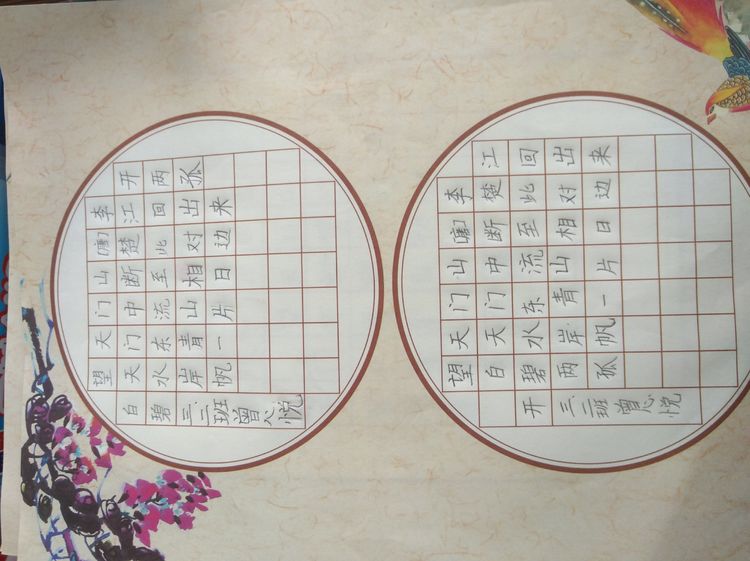 望天门山[唐]李
白天门中断楚江开
碧水东流至此回两
岸青山相对出孤
帆一片日边来
三.二班曾心悦
望天门山[唐]李
白天门中断楚江
开碧水东流至此回
两岸青山相对出
孤帆一片日边来
三.二班曾心悦